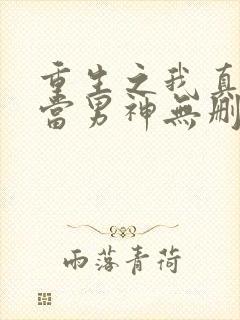 重生之我真
當男神無刪
雨落青荷